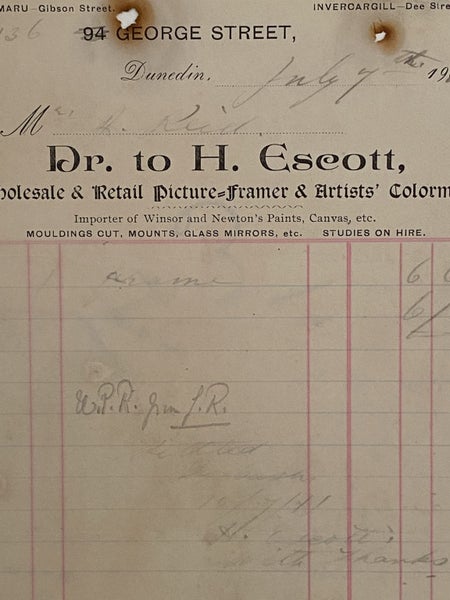 MARU—Gibson Street. INVERCARGILL—Dee Stre
136 94 GEORGE STREET,
Dunedin, July 7th 19
Mrs Reid.
Dr. to H. Escott,
holesale & Retail Picture=Framer & Artists' Colorm
Importer of Winsor and Newton's Paints, Canvas, etc.
MOULDINGS CUT, MOUNTS, GLASS MIRRORS, etc. STUDIES ON HIRE.
1 Frame 6 6
6/
W.P.R. from J.R.
Settled
H. Escott
With Thanks